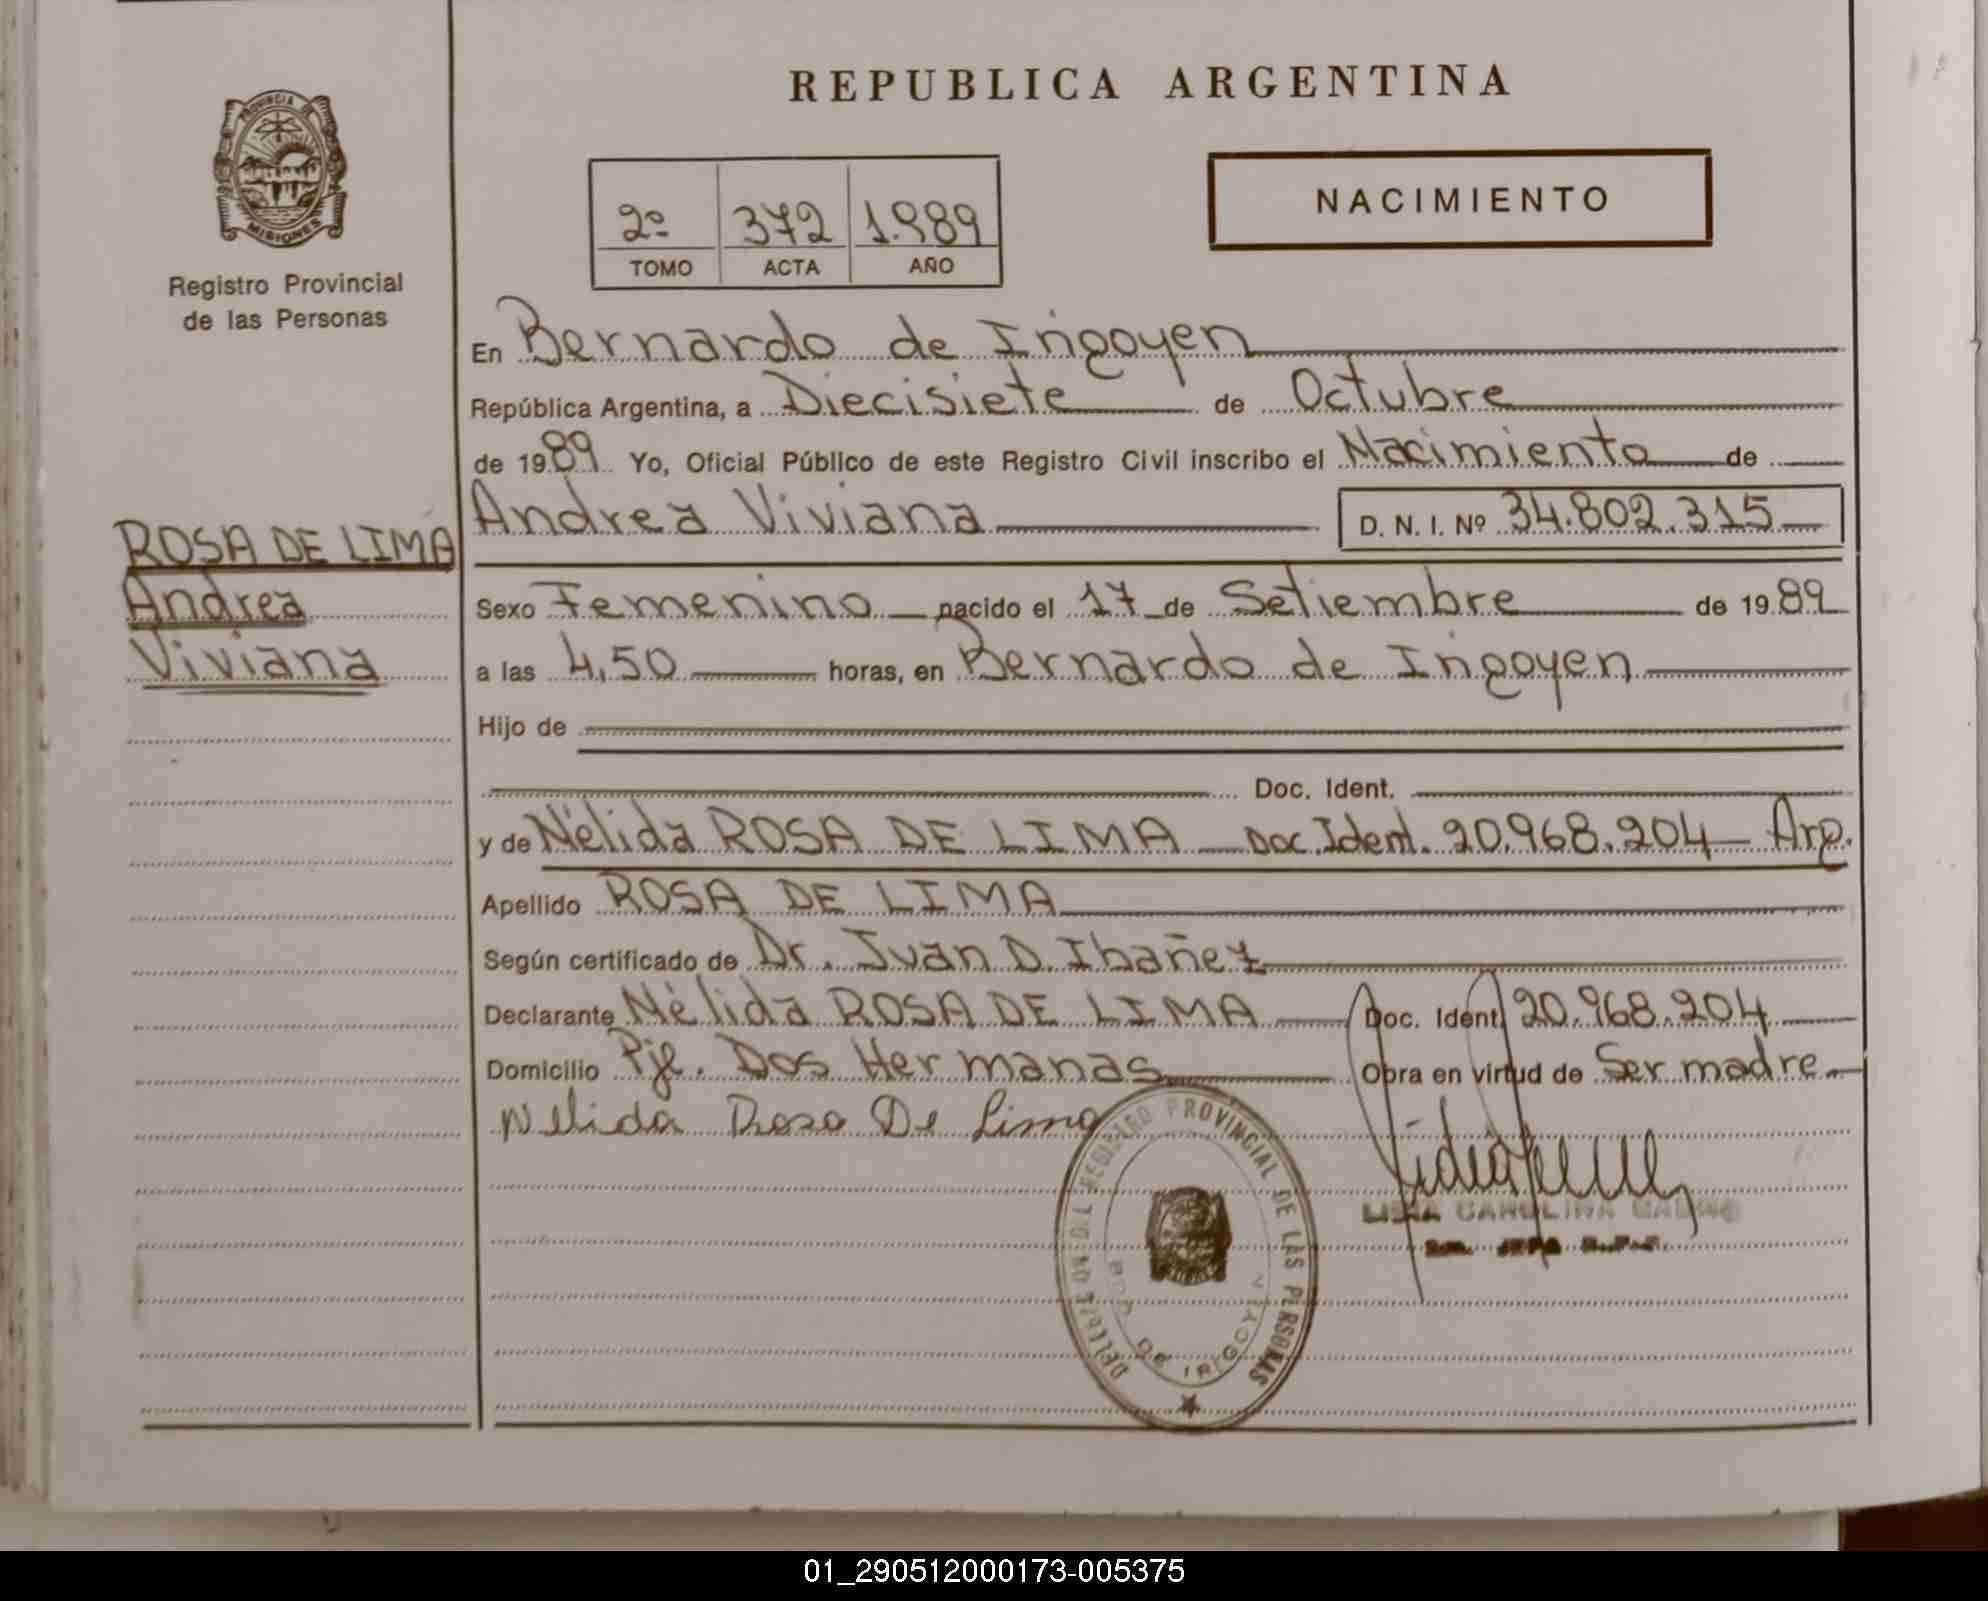 REPUBLICA ARGENTINA
PROVINCIA DE
MISIONES
Registro Provincial
de las Personas
NACIMIENTO
2º 372 1.989
TOMO ACTA AÑO
En Bernardo de Irigoyen
República Argentina, a Diecisiete de Octubre
de 1989 Yo, Oficial Público de este Registro Civil inscribo el Nacimiento de
Andrea Viviana D. N. I. Nº 34.802.315
ROSA DE LIMA
Andrea
Viviana
Sexo Femenino nacido el 17 de Setiembre de 1989
a las 4,50 horas, en Bernardo de Irigoyen
Hijo de
Doc. Ident.
y de Nélida ROSA DE LIMA Doc. Ident. 20.968.204 Arg.
Apellido ROSA DE LIMA
Según certificado de Dr. Juan D. Ibañez
Declarante Nélida ROSA DE LIMA Doc. Ident. 20.968.204
Domicilio Pje. Dos Hermanas Obra en virtud de Ser madre
Nelida Rosa De Lima
DELEGACION DEL REGISTRO PROVINCIAL DE LAS PERSONAS
DE IRIGOYEN
CAROLINA
JEFA
01_290512000173-005375